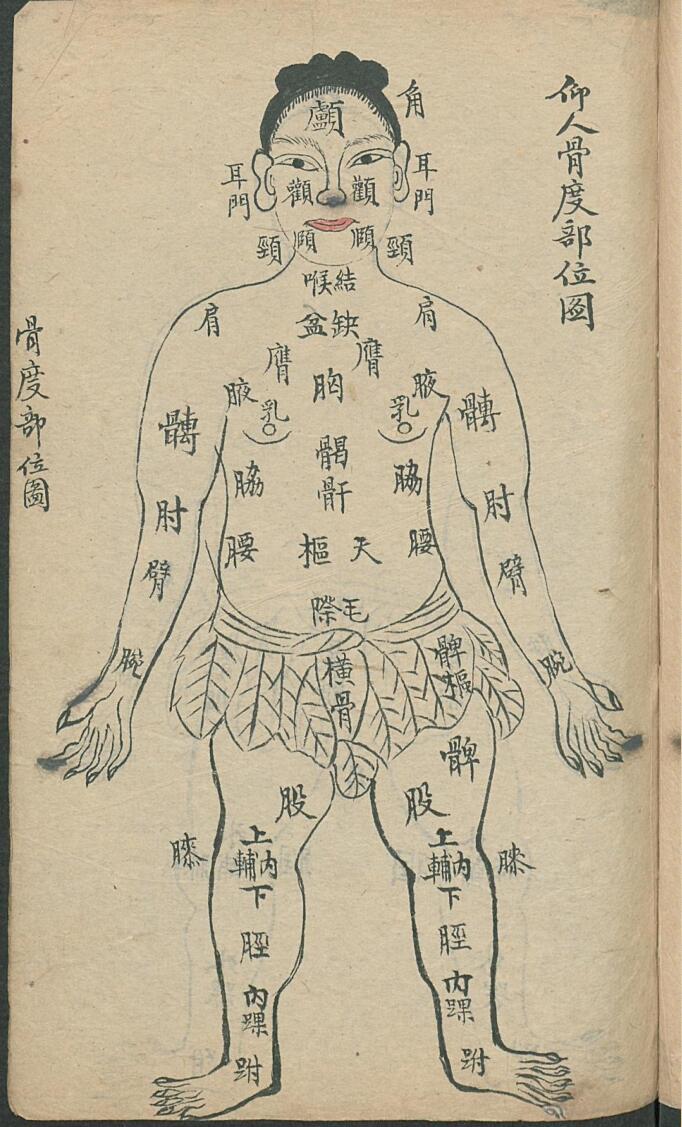 仰人骨度部位圖
骨度部位圖
角
顱
耳門
耳門
顴
顴
頤
頤
頸
頸
結喉
肩
肩
缺盆
膺
膺
胸
腋
腋
乳
乳
髆
髆
𩩲骬
脇
脇
肘
肘
天樞
腰
腰
臂
臂
毛際
腕
腕
橫骨
髀樞
髀
股
股
膝
膝
上
內輔
下
上
內輔
下
脛
脛
內踝
內踝
跗
跗